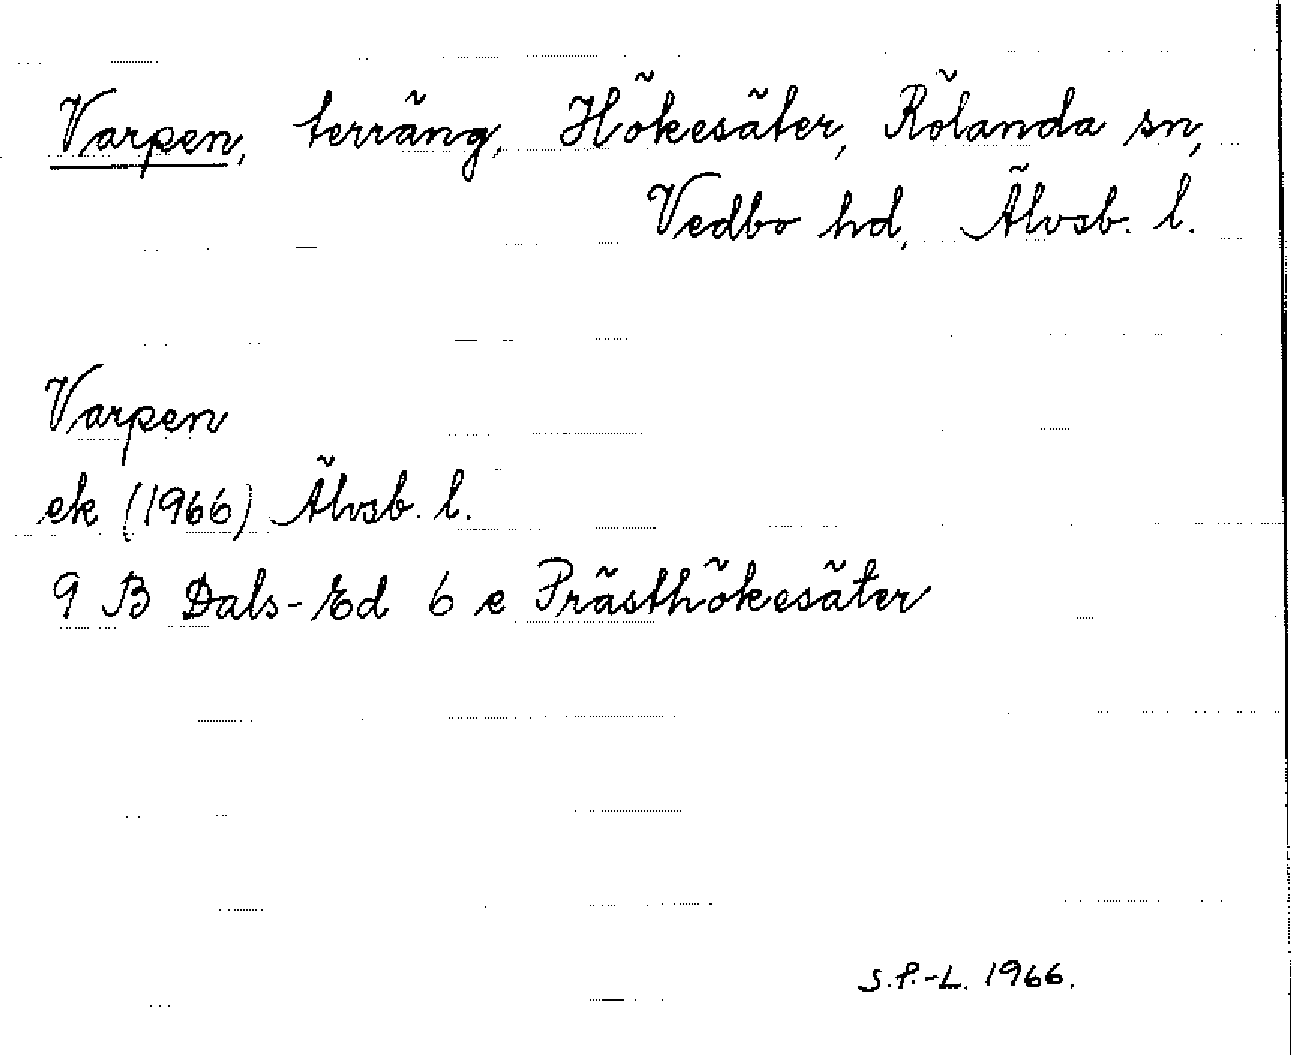 Varpen, terräng, Hökesäter, Rölanda sn,
Vedbo hd, Älvsb. l.
Varpen
ek (1966) Älvsb. l.
9 B Dals-Ed 6 e Prästhökesäter
S.P.-L. 1966.